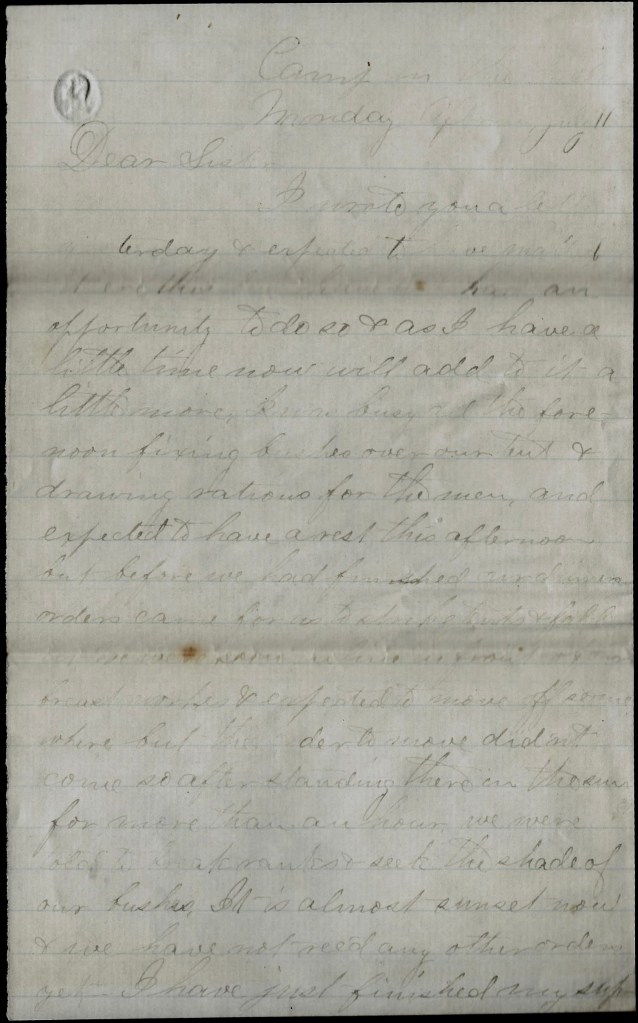 Camp in the
Monday July 11
Dear Sister
I wrote you a
yesterday & expected t have mailed
had an
opportunity to do so & as I have a
little time now will add to it a
little more, I was busy all the fore-
noon fixing bushes over our tent &
drawing rations for the men, and
expected to have a rest this afternoon
but before we had finished our dinner
orders came for us to strike tents & fall
in we were soon in line
breast works & expected to move off some
where but the der to move didn't
come so after standing there in the sun
for more than an hour we were
told to break ranks & seek the shade of
our bushes, It is almost sunset now
& we have not rec'd any other orders
yet I have just finished my sup